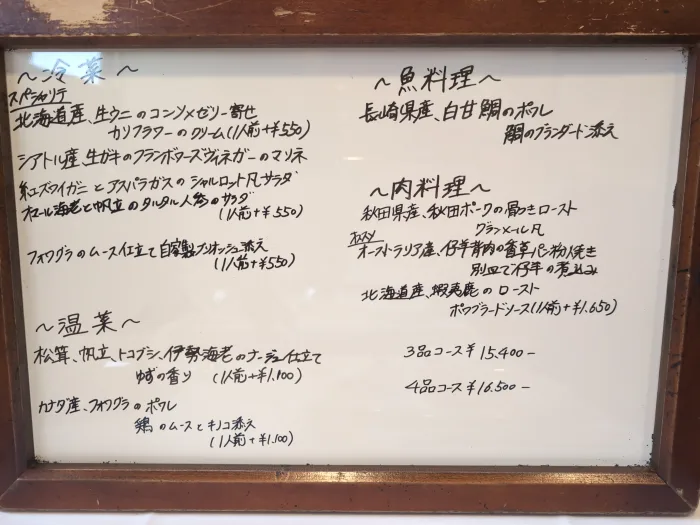 ~冷菜~
スペシャリテ
北海道産、生ウニのコンソメゼリー寄せ
カリフラワーのクリーム(1人前+¥550)
シアトル産、生ガキのフランボワーズヴィネガーのマリネ
紅ズワイガニとアスパラガスのシャルロット風サラダ
オマール海老と帆立のタルタル人参のサラダ
(1人前+¥550)
フォワグラのムース仕立て自家製ブリオッシュ添え
(1人前+¥550)
~温菜~
松茸、帆立、トコブシ、伊勢海老のナージュ仕立て
ゆずの香り (1人前+¥1.100)
カナダ産、フォワグラのポワレ
鶏のムースとキノコ添え
(1人前+¥1.100)
~魚料理~
長崎県産、白甘鯛のポワレ
鯛のブランダード添え
~肉料理~
秋田県産、秋田ポークの骨つきロースト
グランメール風
オススメ
オーストラリア産、仔羊背肉の香草パン粉焼き
別皿で仔羊の煮込み
北海道産、蝦夷鹿のロースト
ポワヴラードソース(1人前+¥1.650)
3品コース¥15.400-
4品コース¥16.500-